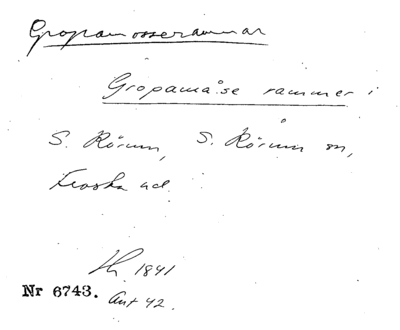 Gropamosserammar
Gropamåse rammer i
S. Rörum, S. Rörum sn,
Frosta hd.
1841
Nr 6743. Ant 42.